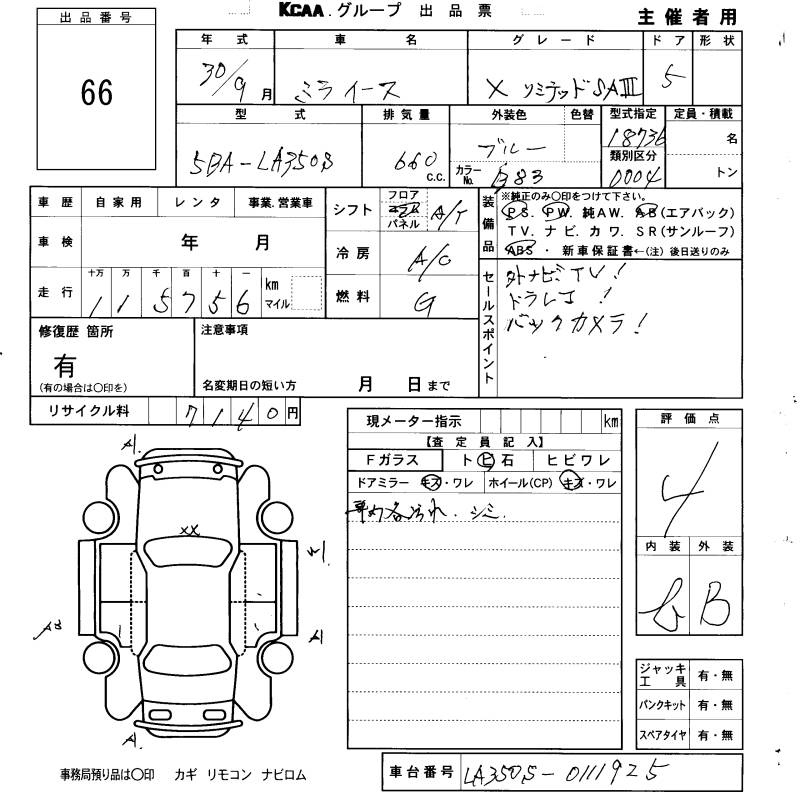 KCAA.グループ 出品票
主催者用
出品番号
66
年式 車名 グレード ドア 形状
30/9月 ミライース X リミテッドSAIII 5
型式 排気量 外装色 色替 型式指定 定員・積載
5BA-LA350S 660 c.c. ブルー 18736 名
カラーNo. B83 類別区分 0004 トン
車歴 自家用 レンタ 事業.営業車
車検 年 月
走行 十万 万 千 百 十 一 km マイル
1 1 5 7 5 6
シフト フロア コラム パネル A/T
冷房 A/C
燃料 G
装備品 ※純正のみ〇印をつけて下さい。
PS. PW. 純AW. AB(エアバック)
TV. ナビ. カワ. SR(サンルーフ)
ABS ・ 新車保証書←(注) 後日送りのみ
セールスポイント
外ナビTV!
ドラレコ!
バックカメラ!
修復歴 箇所
有
(有の場合は〇印を)
注意事項
名変期日の短い方 月 日まで
リサイクル料 7140円
現メーター指示 km
【査定員記入】
Fガラス トビ石 ヒビワレ
ドアミラー キズ・ワレ ホイール(CP) キズ・ワレ
車内各汚れ. シミ.
評価点
4
内装 外装
B
A1.
XX
A1
A1.
ジャッキ工具 有・無
パンクキット 有・無
スペアタイヤ 有・無
事務局預り品は〇印 カギ リモコン ナビロム
車台番号 LA350S-0111925